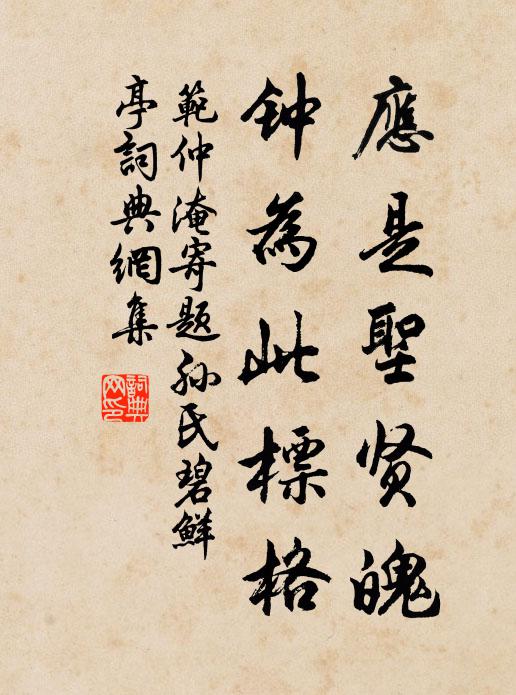 應是聖贤魄
钟為此標格
範仲淹寄题孙氏碧鮮
亭詞典網集
詞典网印